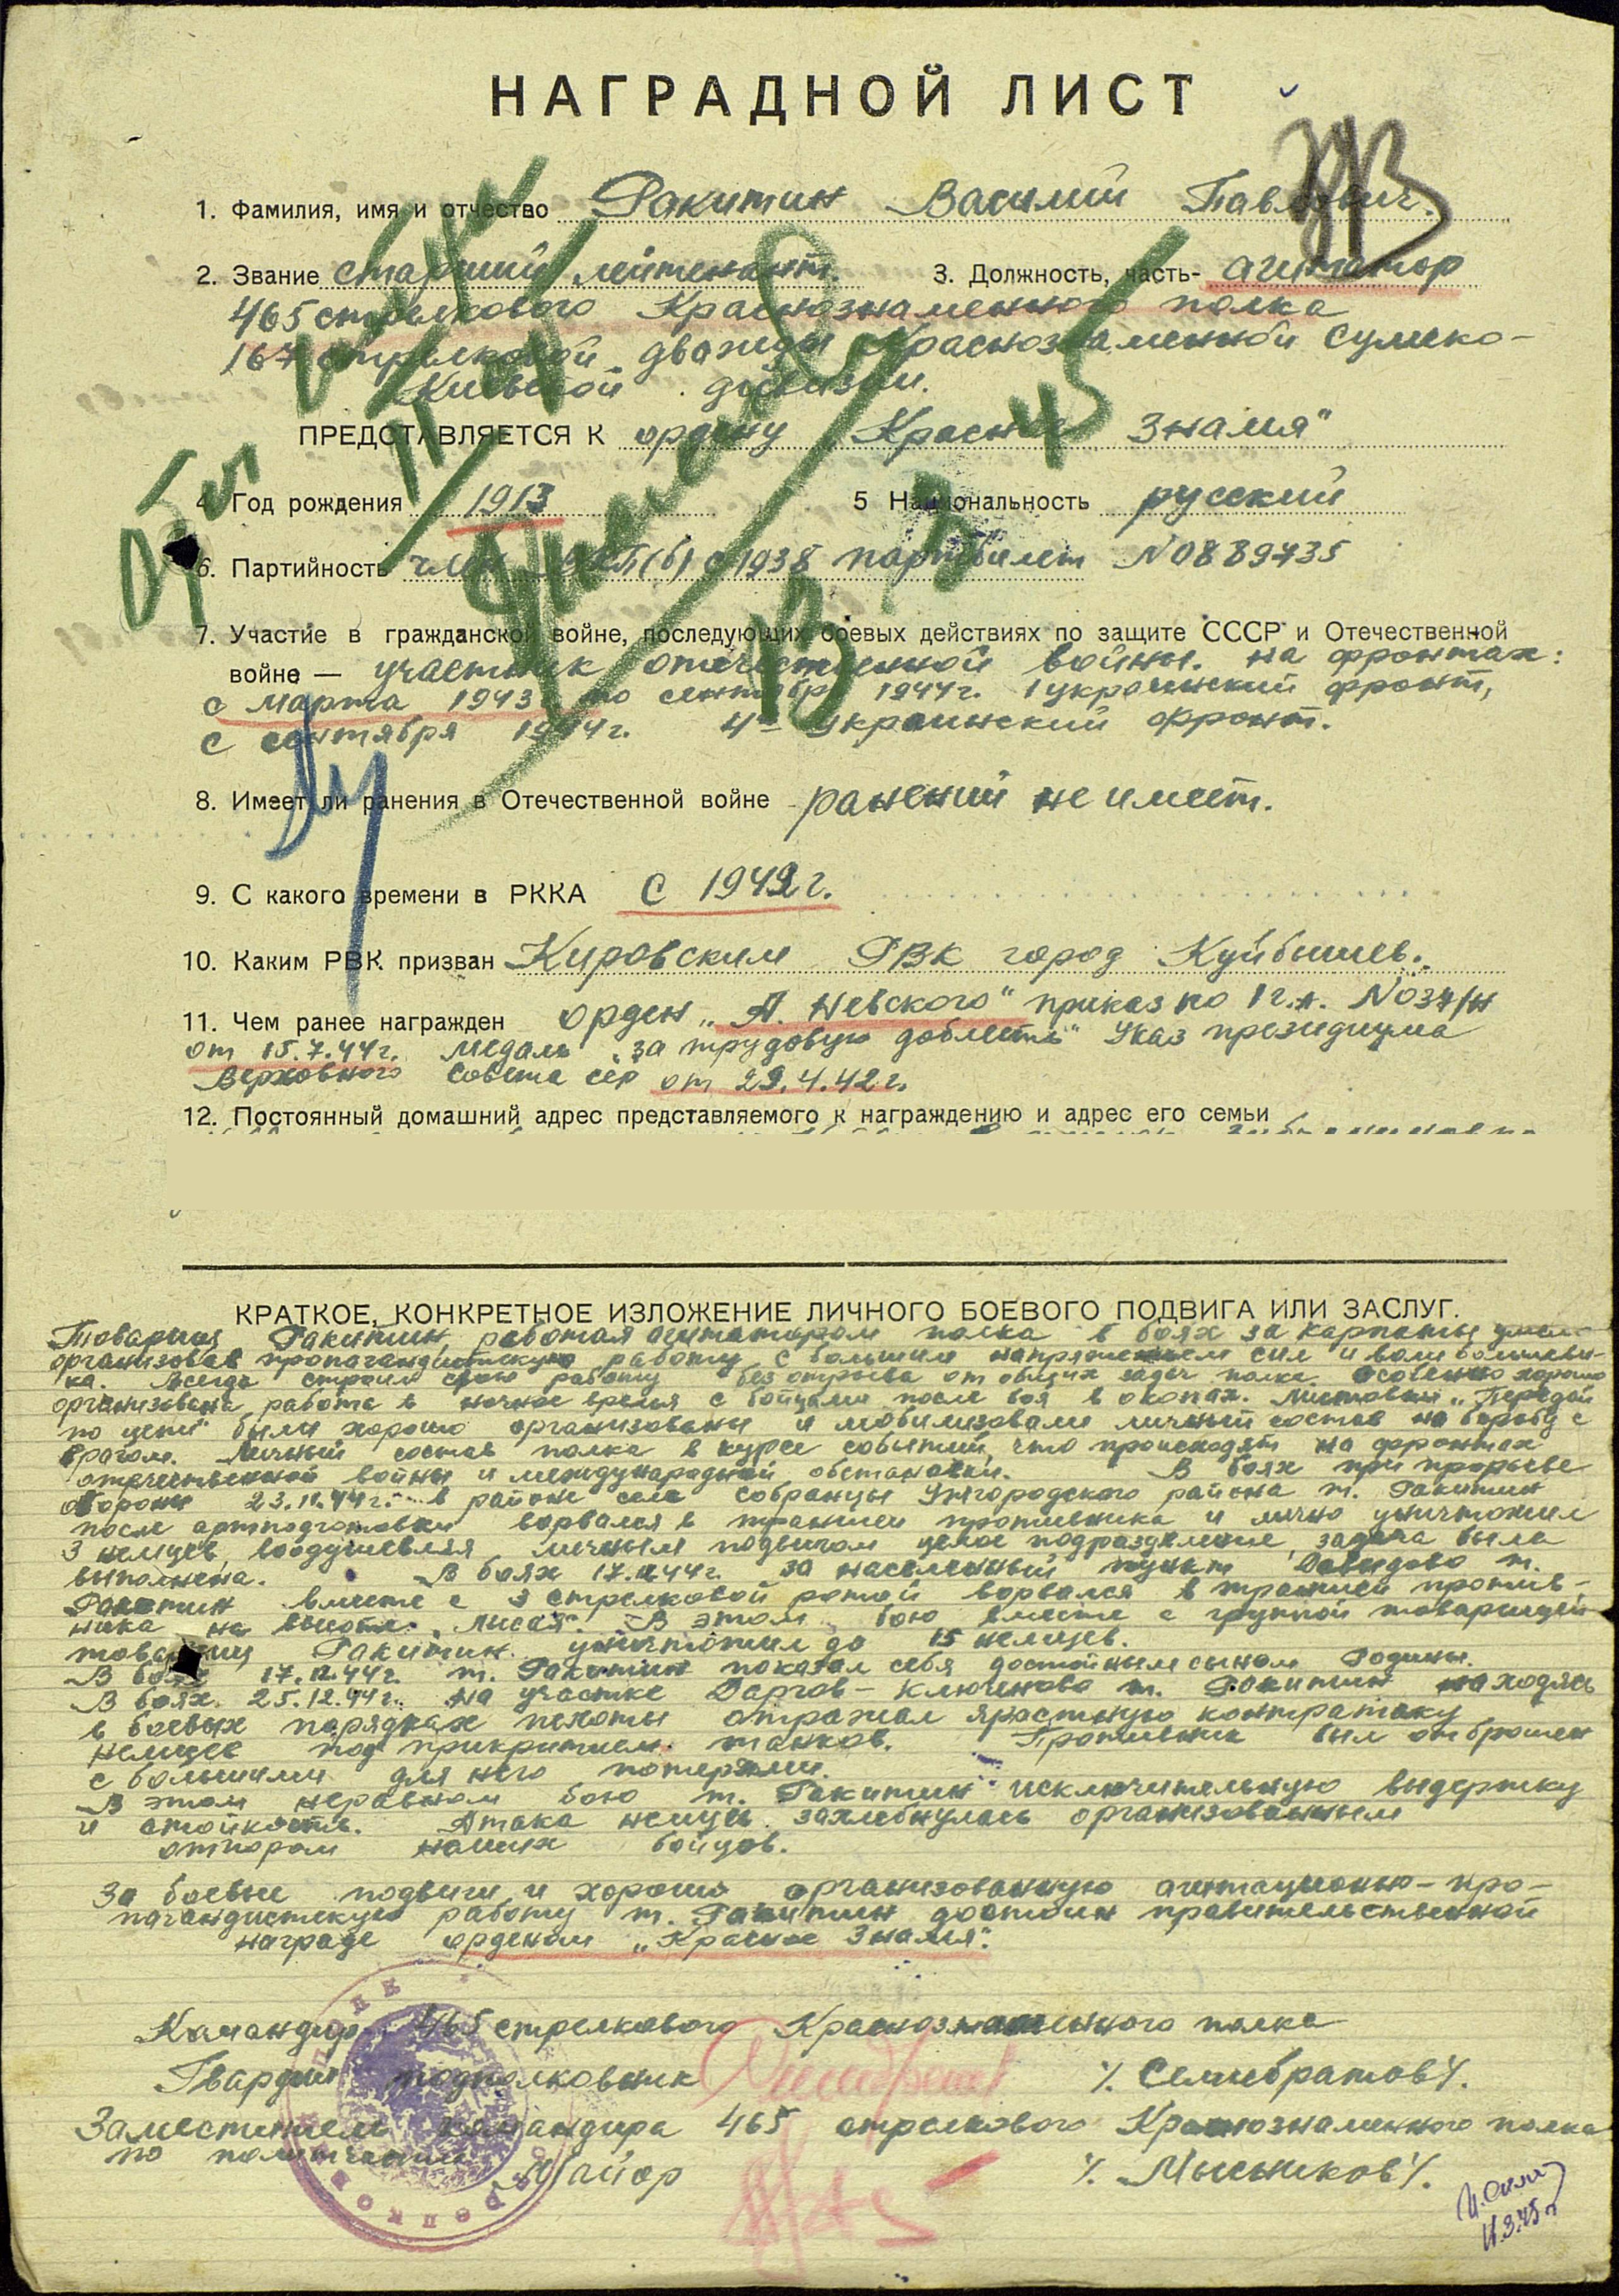 НАГРАДНОЙ ЛИСТ
1. Фамилия, имя и отчество Ракитин Василий Павлович.
2. Звание старший лейтенант. 3. Должность, часть- агитатор
465 стрелкового Краснознаменного полка
167 стрелковой дважды Краснознаменной Сумско-
Киевской дивизии.
ПРЕДСТАВЛЯЕТСЯ К ордену „Красное Знамя"
4. Год рождения 1913 5 Национальность русский
6. Партийность член ВКП(б) с 1938 партбилет N 0889735
7. Участие в гражданской войне, последующих боевых действиях по защите СССР и Отечественной
войне — участник отечественной войны. на фронтах:
с марта 1943 по сентябрь 1944г. 1 украинский фронт,
с сентября 1944г. 4й украинский фронт.
8. Имеет ли ранения в Отечественной войне ранений не имеет.
9. С какого времени в РККА с 1942г.
10. Каким РВК призван Кировским РВК город Куйбышев.
11. Чем ранее награжден орден „А. Невского" приказ по 1 г.А. N 037/н
от 15.7.44г. медаль „за трудовую доблесть" Указ президиума
Верховного Совета сср от 29.4.42г.
12. Постоянный домашний адрес представляемого к награждению и адрес его семьи
КРАТКОЕ, КОНКРЕТНОЕ ИЗЛОЖЕНИЕ ЛИЧНОГО БОЕВОГО ПОДВИГА ИЛИ ЗАСЛУГ.
Товарищ Ракитин, работая агитатором полка в боях за Карпаты умело
организовав пропагандистскую работу с большим напряжением сил и воли большеви-
ка. Всегда строил свою работу без отрыва от общих задач полка. Особенно хорошо
организована работа в ночное время с бойцами после боя в окопах. Листовки „Передай
по цепи" были хорошо организованы и мобилизовали личный состав на борьбу с
врагом. Личный состав полка в курсе событий, что происходят на фронтах
отечественной войны и международной обстановки. В боях при прорыве
обороны 23.11.44г. в районе села Собранцы Ужгородского района т. Ракитин
после артподготовки ворвался в траншеи противника и лично уничтожил
3 немцев, воодушевляя личным подвигом целое подразделение, задача была
выполнена. В боях 17.12.44г. за населенный пункт Давидово т.
Ракитин вместе с 3 стрелковой ротой ворвался в траншеи против-
ника на высоте „Лысая". В этом бою вместе с группой товарищей
товарищ Ракитин уничтожил до 15 немцев.
В боях 17.12.44г. т. Ракитин показал себя достойным сыном Родины.
В боях 25.12.44г. на участке Даргов-Клюеново т. Ракитин находясь
в боевых порядках пехоты отражал яростную контратаку
немцев под прикрытием танков. Противник был отброшен
с большими для него потерями.
В этом неравном бою т. Ракитин исключительную выдержку
и стойкость. Атака немцев захлебнулась организованным
отпором наших бойцов.
За боевые подвиги и хорошо организованную агитационно-про-
пагандистскую работу т. Ракитин достоин правительственной
награде орденом „Красное Знамя".
Командир 465 стрелкового Краснознаменного полка
Гвардии подполковник /. Семибратов/.
Заместитель командира 465 стрелкового Краснознаменного полка
по политчасти Майор /. Мысников/.
11.3.45г